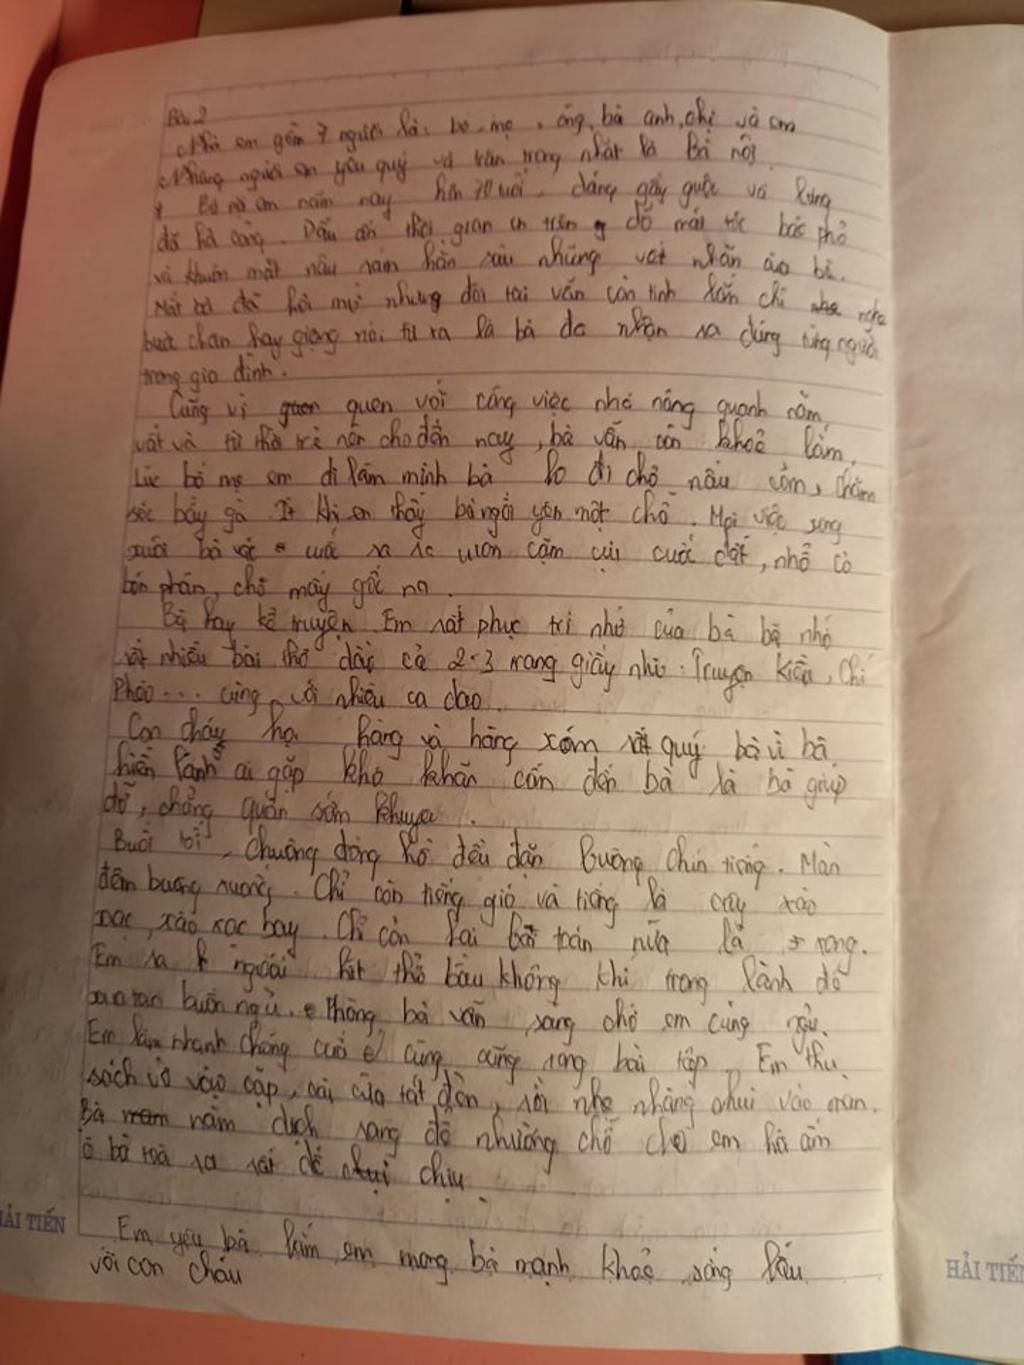 Bài 2
Nhà em gồm 7 người là: bố, mẹ, ông, bà anh, chị và em
Những người em yêu quý và trân trọng nhất là Bà nội
Bà nội em năm nay hơn 70 tuổi, dáng gầy guộc và lưng
đã hà còng. Dấu ấn thời gian in trên đó mái tóc bác phơ
và khuôn mặt nâu sám hằn sâu những vết nhăn
Mắt bà đã hơi mờ nhưng đôi tai vẫn còn tinh lắm chỉ nghe
bước chân hay giọng nói từ xa là bà đa nhận ra đúng từng người
trong gia đình.
Cũng vị quen với công việc nhà nông quanh năm
vất và từ thời trẻ nên cho đến nay, bà vẫn còn khoẻ lắm.
Lúc bố mẹ em đi làm mình bà lo đi chợ nấu cơm, chăm
sóc bầy gà Ít khi em thấy bà ngồi yên một chỗ. Mọi việc song
xuôi bà vác cuốc ra vườn cặm cụi cuốc đất, nhổ cỏ
bón phân, cho mấy gốc na.
Bà hay kể truyện Em rất phục trí nhớ của bà bà nhớ
rất nhiều bài thơ dài cả 2-3 trang giấy như: Truyện Kiều, Chí
Phèo... cùng với nhiều ca dao.
Con cháu họ hàng và hàng xóm rất quý bà vì bà
hiền lành ai gặp khó khăn cần đến bà là bà giúp
đỡ, chẳng quản sớm khuya.
Buổi tối, Chuông đồng hồ đều đặn buông chín tiếng. Màn
đêm buông xuống. Chỉ còn tiếng gió và tiếng lá cây xào
xạc, xào xạc bay. Chỉ còn lại bài toán nữa là xong.
Em ra ngoài hít thở bầu không khí trong lành để
xua tan buồn ngủ. Phòng bà vẫn sáng chờ em cùng ngủ.
Em làm nhanh chóng cuối cùng cũng xong bài tập. Em thu
sách vở vào cặp, cài cửa tắt đèn, rồi nhẹ nhàng chui vào màn.
Bà nằm dịch sang để nhường chỗ cho em hà ấm
ở bà toả ra rất dễ chịu
Em yêu bà lắm em mong bà mạnh khoẻ sống lâu
với con cháu
HẢI TIẾN
HẢI TIẾN